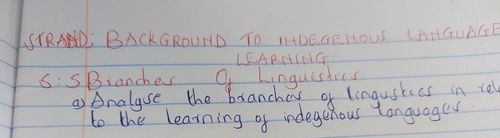 STRAND: BACKGROUND TO INDEGENOUS LANGUAGE
LEARNING.
S: S Branches Of Linguistics
a) Analyse the branches of linguistics in rel
to the learning of indegenous languages.